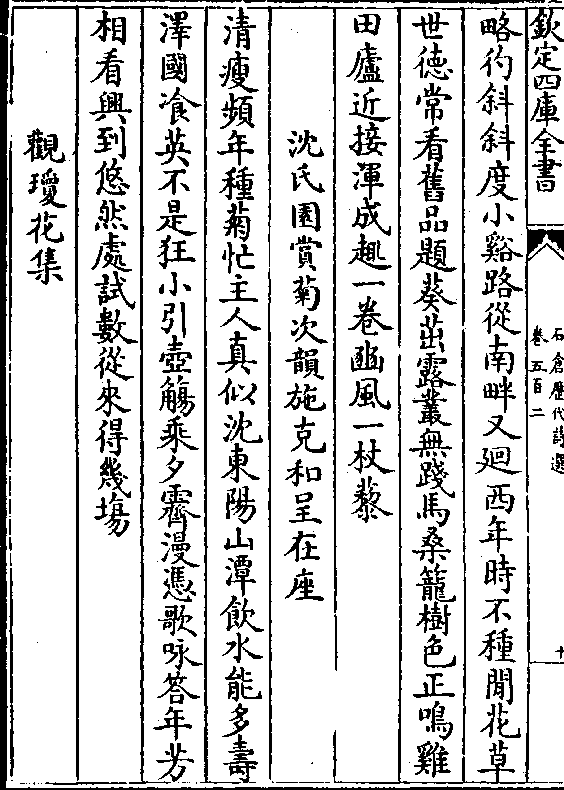 欽定四庫全書
石倉歷代詩選
卷五百二
十
略彴斜斜度小谿路從南畔又廻西年時不種閒花草
世徳常看舊品題葵茁露叢無踐馬桑籠樹色正鳴雞
田廬近接渾成趣一卷豳風一杖藜
沈氏園賞菊次韻施克和呈在座
清瘦頻年種菊忙主人真似沈東陽山潭飲水能多壽
澤國飡英不是狂小引壺觴乘夕霽漫憑歌咏答年芳
相看興到悠然處試數從來得幾塲
觀瓊花集